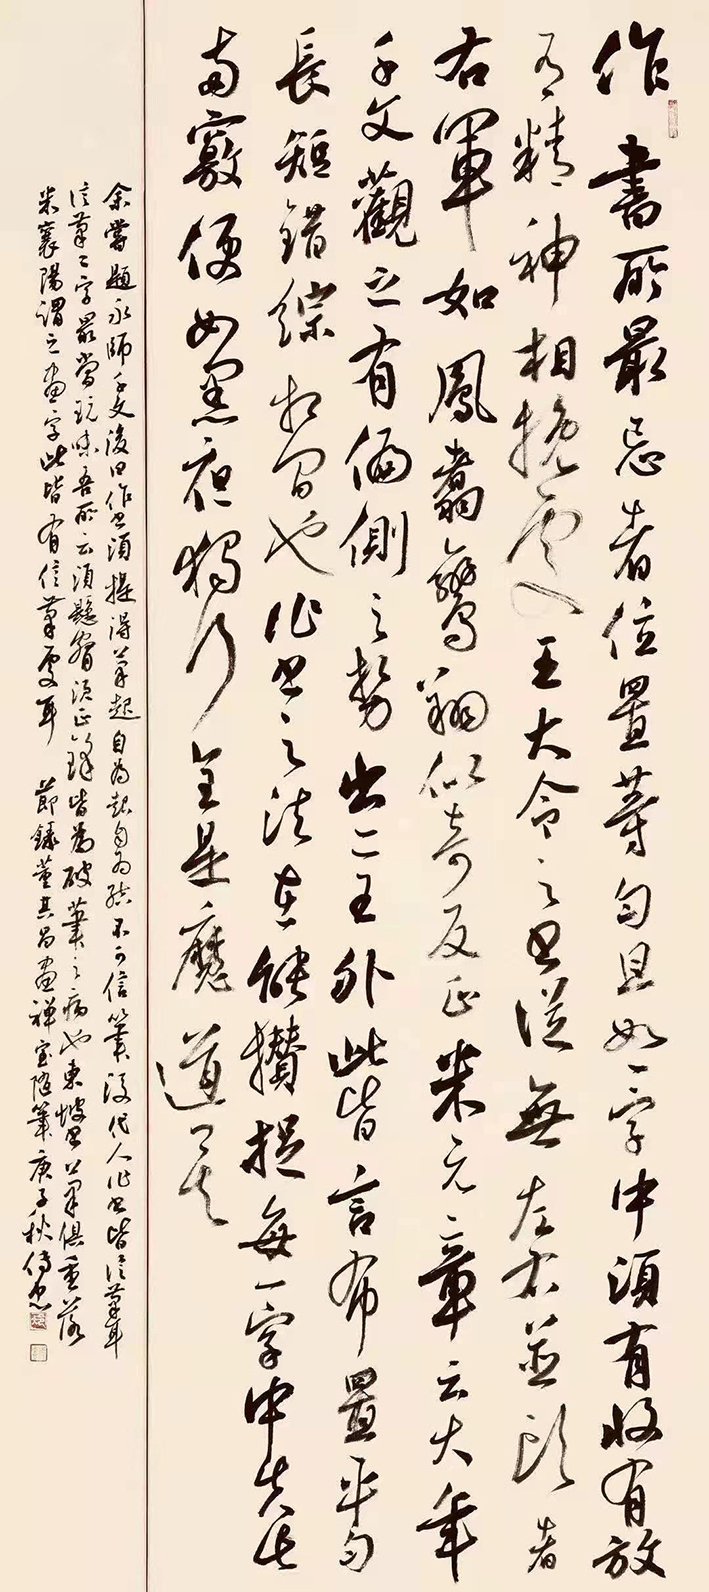 作書所最忌者位置等勻且如一字中須有收有放
有精神相挽處王大令之書從無左右並頭者
右軍如鳳翥鸞翔似奇反正米元章云大年
千文觀之有偏側之勢出二王外此皆言布置平勻
長短錯綜相間也作書之法在能攢捉每一字中失此
兩竅便如黑夜獨行全是魔道矣
余嘗題永師千文後曰作書須提得筆起自為起自為結不可信筆後代人作書皆信筆耳
信筆二字最當玩味吾所云須懸腕須正鋒皆為破筆之病也東坡書筆俱重落
米襄陽謂之畫字此皆有信筆處耳 節錄董其昌畫禪室隨筆庚子秋